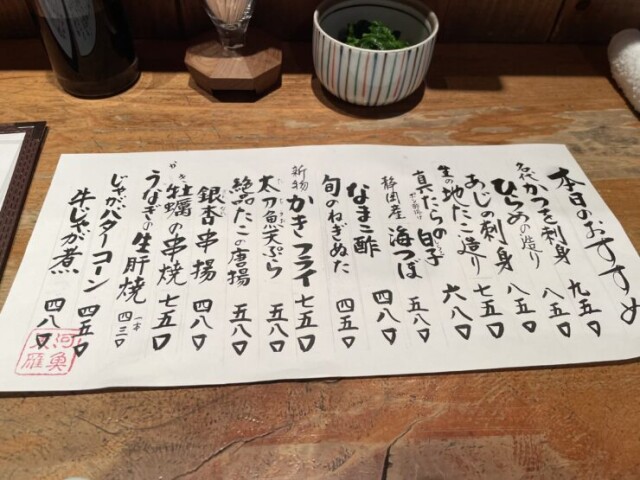 本日のおすすめ
名代 かつを刺身 九五〇
ひらめの造り 八五〇
あじの刺身 八五〇
生の地たこ造り 七五〇
真だらの白子 六八〇
静岡産 海つぼ 五八〇
なまこ酢 四八〇
旬のねぎぬた 四五〇
新物 かきフライ 七五〇
太刀魚天ぷら 五八〇
絶品たこの唐揚 五八〇
銀杏串揚 四八〇
牡蠣の串焼 七五〇
うなぎの生肝焼 一本 四三〇
じゃがバターコーン 四五〇
牛じゃが煮 四八〇